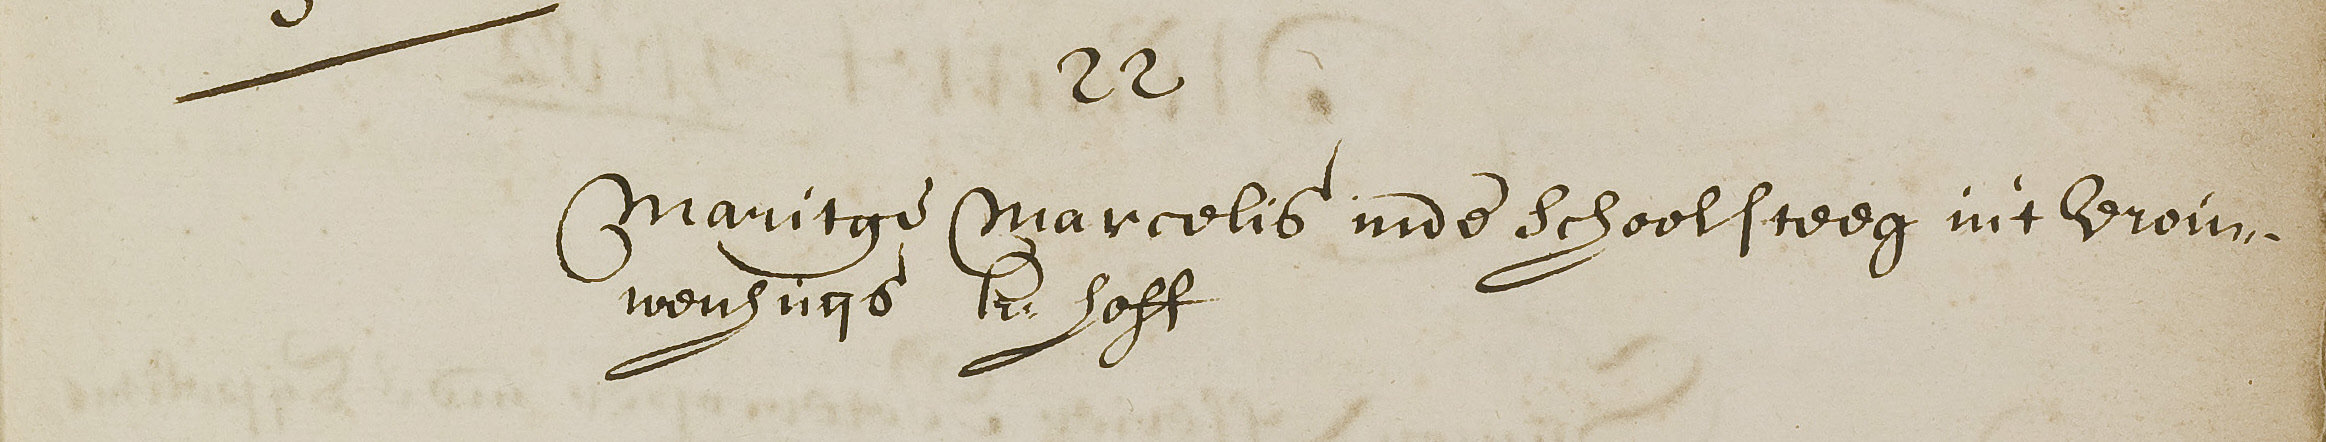 22
Maritge Marcelis inde Schoolsteeg int vrou„
wenhuijs k: hoff